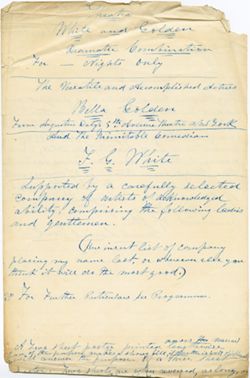 Theatre
White and Golden
Dramatic Combination
For — Nights Only
The Versatile and Accomplished Actress
Bella Golden
From Augustin Daly's 5th Avenue Theatre New York
And The Inimitable Comedian
F. G. White
Supported by a carefully selected
Company of artists of acknowledged
ability. comprising the following ladies
and gentlemen.
(Give next list of company
placing my name last, or wherever you
think it will do the most good.)
For Further Particulars see Programme.
A Three sheet poster printed